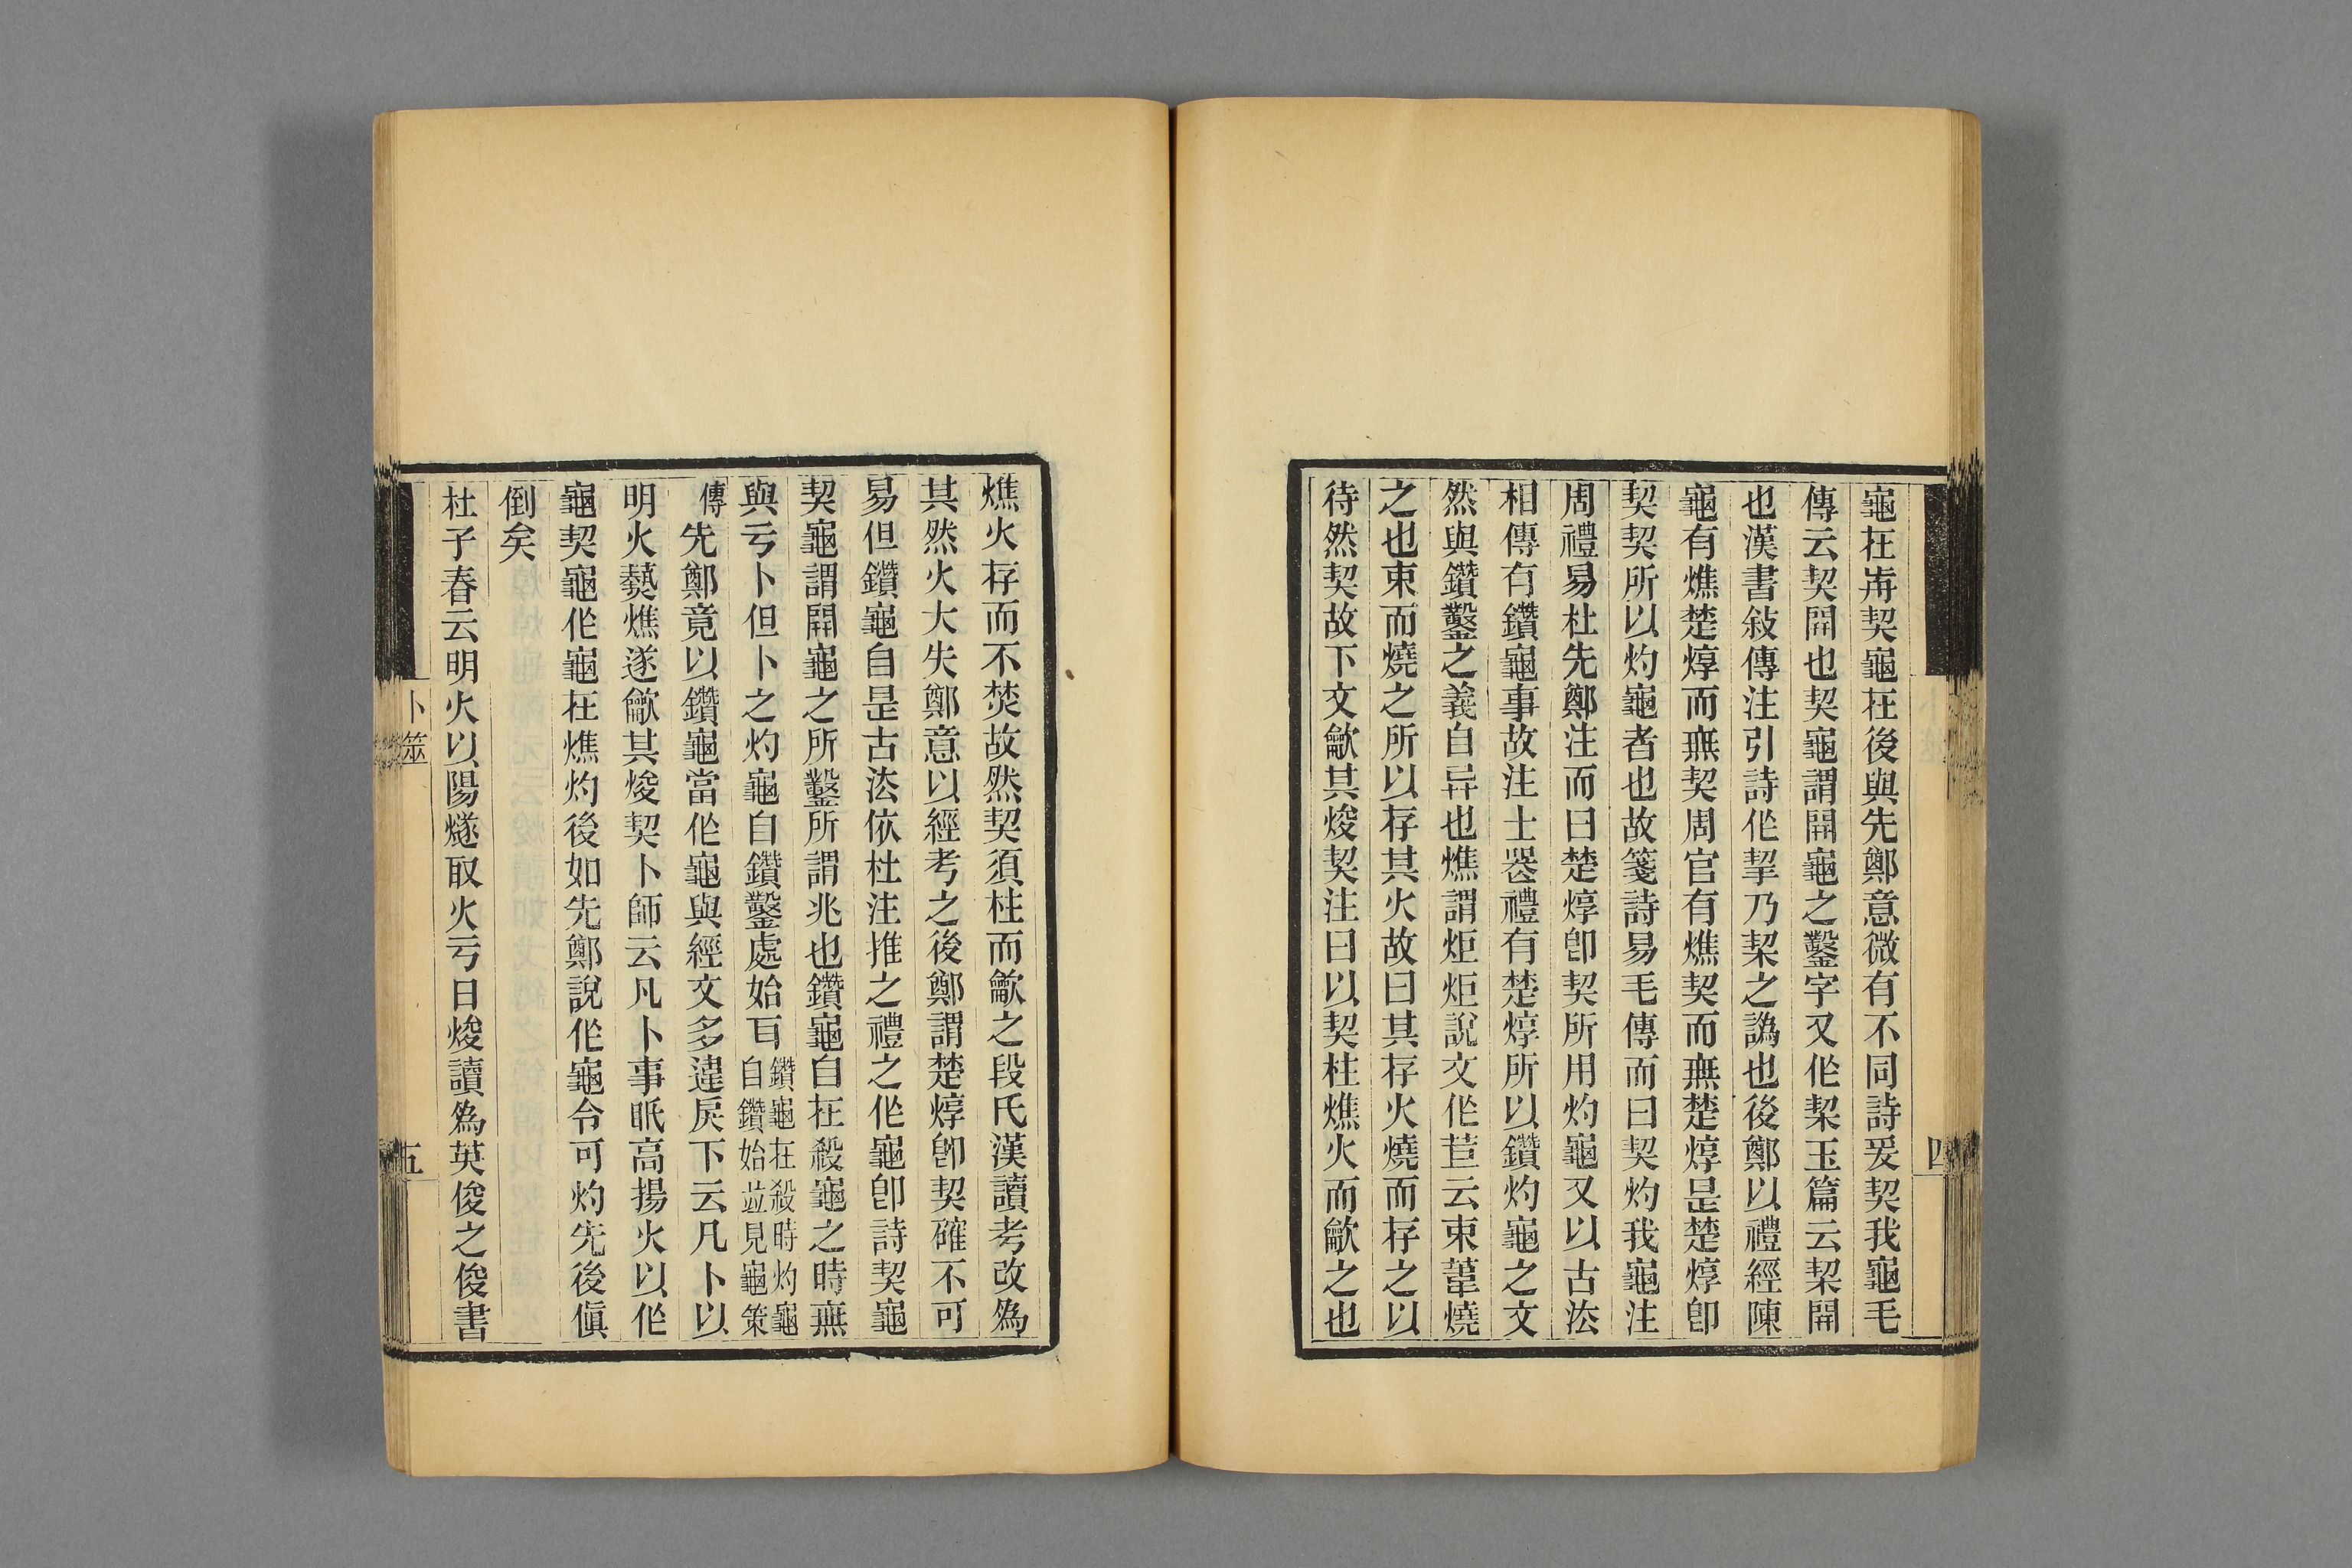 龜在歬契龜在後與先鄭意微有不同詩爰契我龜毛
傳云契開也契龜謂開龜之鑿字又作栔玉篇云栔開
也漢書敍傳注引詩作挈乃栔之譌也後鄭以禮經陳
龜有燋楚焞而無契周官有燋契而無楚焞是楚焞卽
契契所以灼龜者也故箋詩易毛傳而曰契灼我龜注
周禮易杜先鄭注而曰楚焞卽契所用灼龜又以古法
相傳有鑽龜事故注士喪禮有楚焞所以鑽灼龜之文
然與鑽鑿之義自异也燋謂炬炬說文作苣云束葦燒
之也束而燒之所以存其火故曰其存火燒而存之以
待然契故下文龡其焌契注曰以契柱燋火而龡之也
四
燋火存而不焚故然契須柱而龡之段氏漢讀考改爲
其然火大失鄭意以經考之後鄭謂楚焞卽契確不可
易但鑽龜自是古法依杜注推之禮之作龜卽詩契龜
契龜謂開龜之所鑿所謂兆也鑽龜自在殺龜之時無
與亏卜但卜之灼龜自鑽鑿處始耳鑽龜在殺時灼龜自鑽始竝見龜策
傳先鄭竟以鑽龜當作龜與經文多違戾下云凡卜以
明火爇燋遂龡其焌契卜師云凡卜事眡高揚火以作
龜契龜作龜在燋灼後如先鄭說作龜令可灼先後傎
倒矣
杜子春云明火以陽燧取火亏日焌讀爲英俊之俊書
卜筮
五